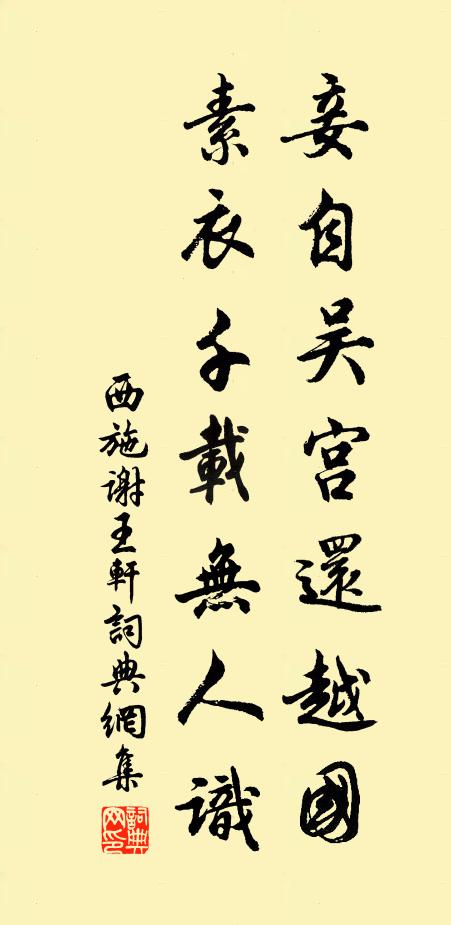 妾自吴宫還越國
素衣千載無人識
西施謝王軒詞典網集
詞典網印